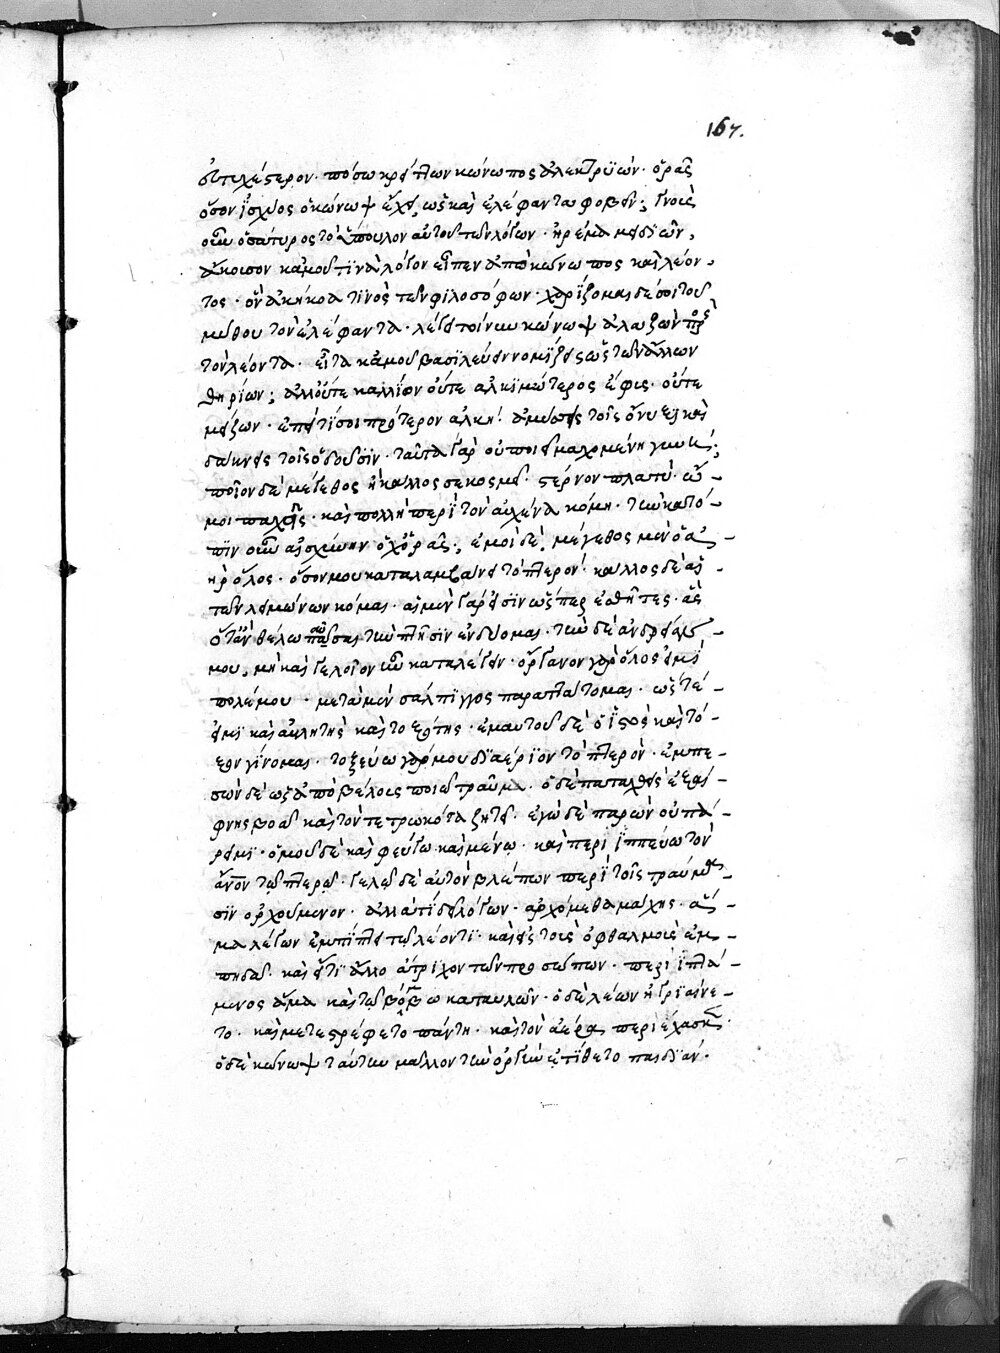 167.
εὐτυχέστερον· πόσω κρείττων κώνωπος ἀλεκτρυών· ὁρᾶς
ὅσον ἰσχύος ὁ κώνωψ ἔχει, ὡς καὶ ἐλέφαντα φοβεῖν; γνοὺς
οὖν ὁ σάτυρος τὸ ὕπουλον αὐτοῦ τῶν λόγων· ἠρέμα μειδιῶν,
ἄκουσον κἀμοῦ τινὰ λόγον εἶπεν ἀπὸ κώνωπος καὶ λέον-
τος· ὃν ἀκήκοά τινος τῶν φιλοσόφων· χαρίζομαι δέ σοι τοῦ
μύθου τὸν ἐλέφαντα· λέγει τοίνυν κώνωψ ἀλαζὼν πρὸς
τὸν λέοντα· εἶτα κἀμοῦ βασιλεύειν νομίζεις ὡς τῶν ἄλλων
θηρίων; ἀλλ' οὔτε καλλίων οὔτε ἀλκιμώτερος ἔφυς· οὔτε
μείζων· ἐπεὶ τίς σοι πρότερον ἀλκή; ἀμύσσεις τοῖς ὄνυξι καὶ
δάκνεις τοῖς ὀδοῦσιν· ταῦτα γὰρ οὐ ποιεῖ μαχομένη γυνή;
ποῖον δὲ μέγεθος ἢ κάλλος σε κοσμεῖ· στέρνον πλατύ· ὦ-
μοι παχεῖς· καὶ πολλὴ περὶ τὸν αὐχένα κόμη· τὴν κατό-
πιν οὖν αἰσχύνην οὐχ ὁρᾷς; ἐμοὶ δὲ μέγεθος μὲν ὁ ἀ-
ὴρ ὅλος· ὅσον μου καταλαμβάνει τὸ πτερόν· κάλλος δὲ αἱ
τῶν λειμώνων κόμαι· αἱ μὲν γάρ εἰσιν ὥσπερ ἐσθῆτες· ἃς
ὅταν θέλω παῦσαι τὴν πτῆσιν ἐνδύομαι· τὴν δὲ ἀνδρείαν
μου, μὴ καὶ γελοῖον ἦν καταλέγειν· ὄργανον γὰρ ὅλος εἰμὶ
πολέμου· μετὰ μὲν σάλπιγγος παρατάττομαι· ὥστέ
εἰμι καὶ αὐλητὴς καὶ τοξότης· ἐμαυτοῦ δὲ ὀϊστὸς καὶ τό-
ξον γίνομαι· τοξεύω γάρ μου διαέριον τὸ πτερόν· ἐμπε-
σὼν δὲ ὡς ἀπὸ βέλους ποιῶ τραῦμα· ὁ δὲ παταχθεὶς ἐξαί-
φνης βοᾷ καὶ τὸν τετρωκότα ζητεῖ· ἐγὼ δὲ παρὼν οὐ πά-
ρειμι· ὁμοῦ δὲ καὶ φεύγω καὶ μένω· καὶ περιϊππεύω τὸν
ἄνον τῷ πτερῷ· γελῶ δὲ αὐτὸν βλέπων περὶ τοῖς τραύμα-
σιν ὀρχούμενον· ἀλλὰ τί δεῖ λόγων· ἀρχόμεθα μάχης· ἅ-
μα λέγων ἐμπίπτει τῷ λέοντι· καὶ εἰς τοὺς ὀφθαλμοὺς ἐμ-
πηδᾷ· καὶ εἴ τι ἄλλο ἄτριχον τῶν προσώπων· περιϊπτά-
μενος ἅμα καὶ τῷ βόμβῳ καταυλῶν· ὁ δὲ λέων ἠγριαίνε-
το· καὶ μετεστρέφετο πάντη· καὶ τὸν ἀέρα περιέχασκεν·
ὁ δὲ κώνωψ ταύτην μᾶλλον τὴν ὀργὴν ἐτίθετο παιδιάν·